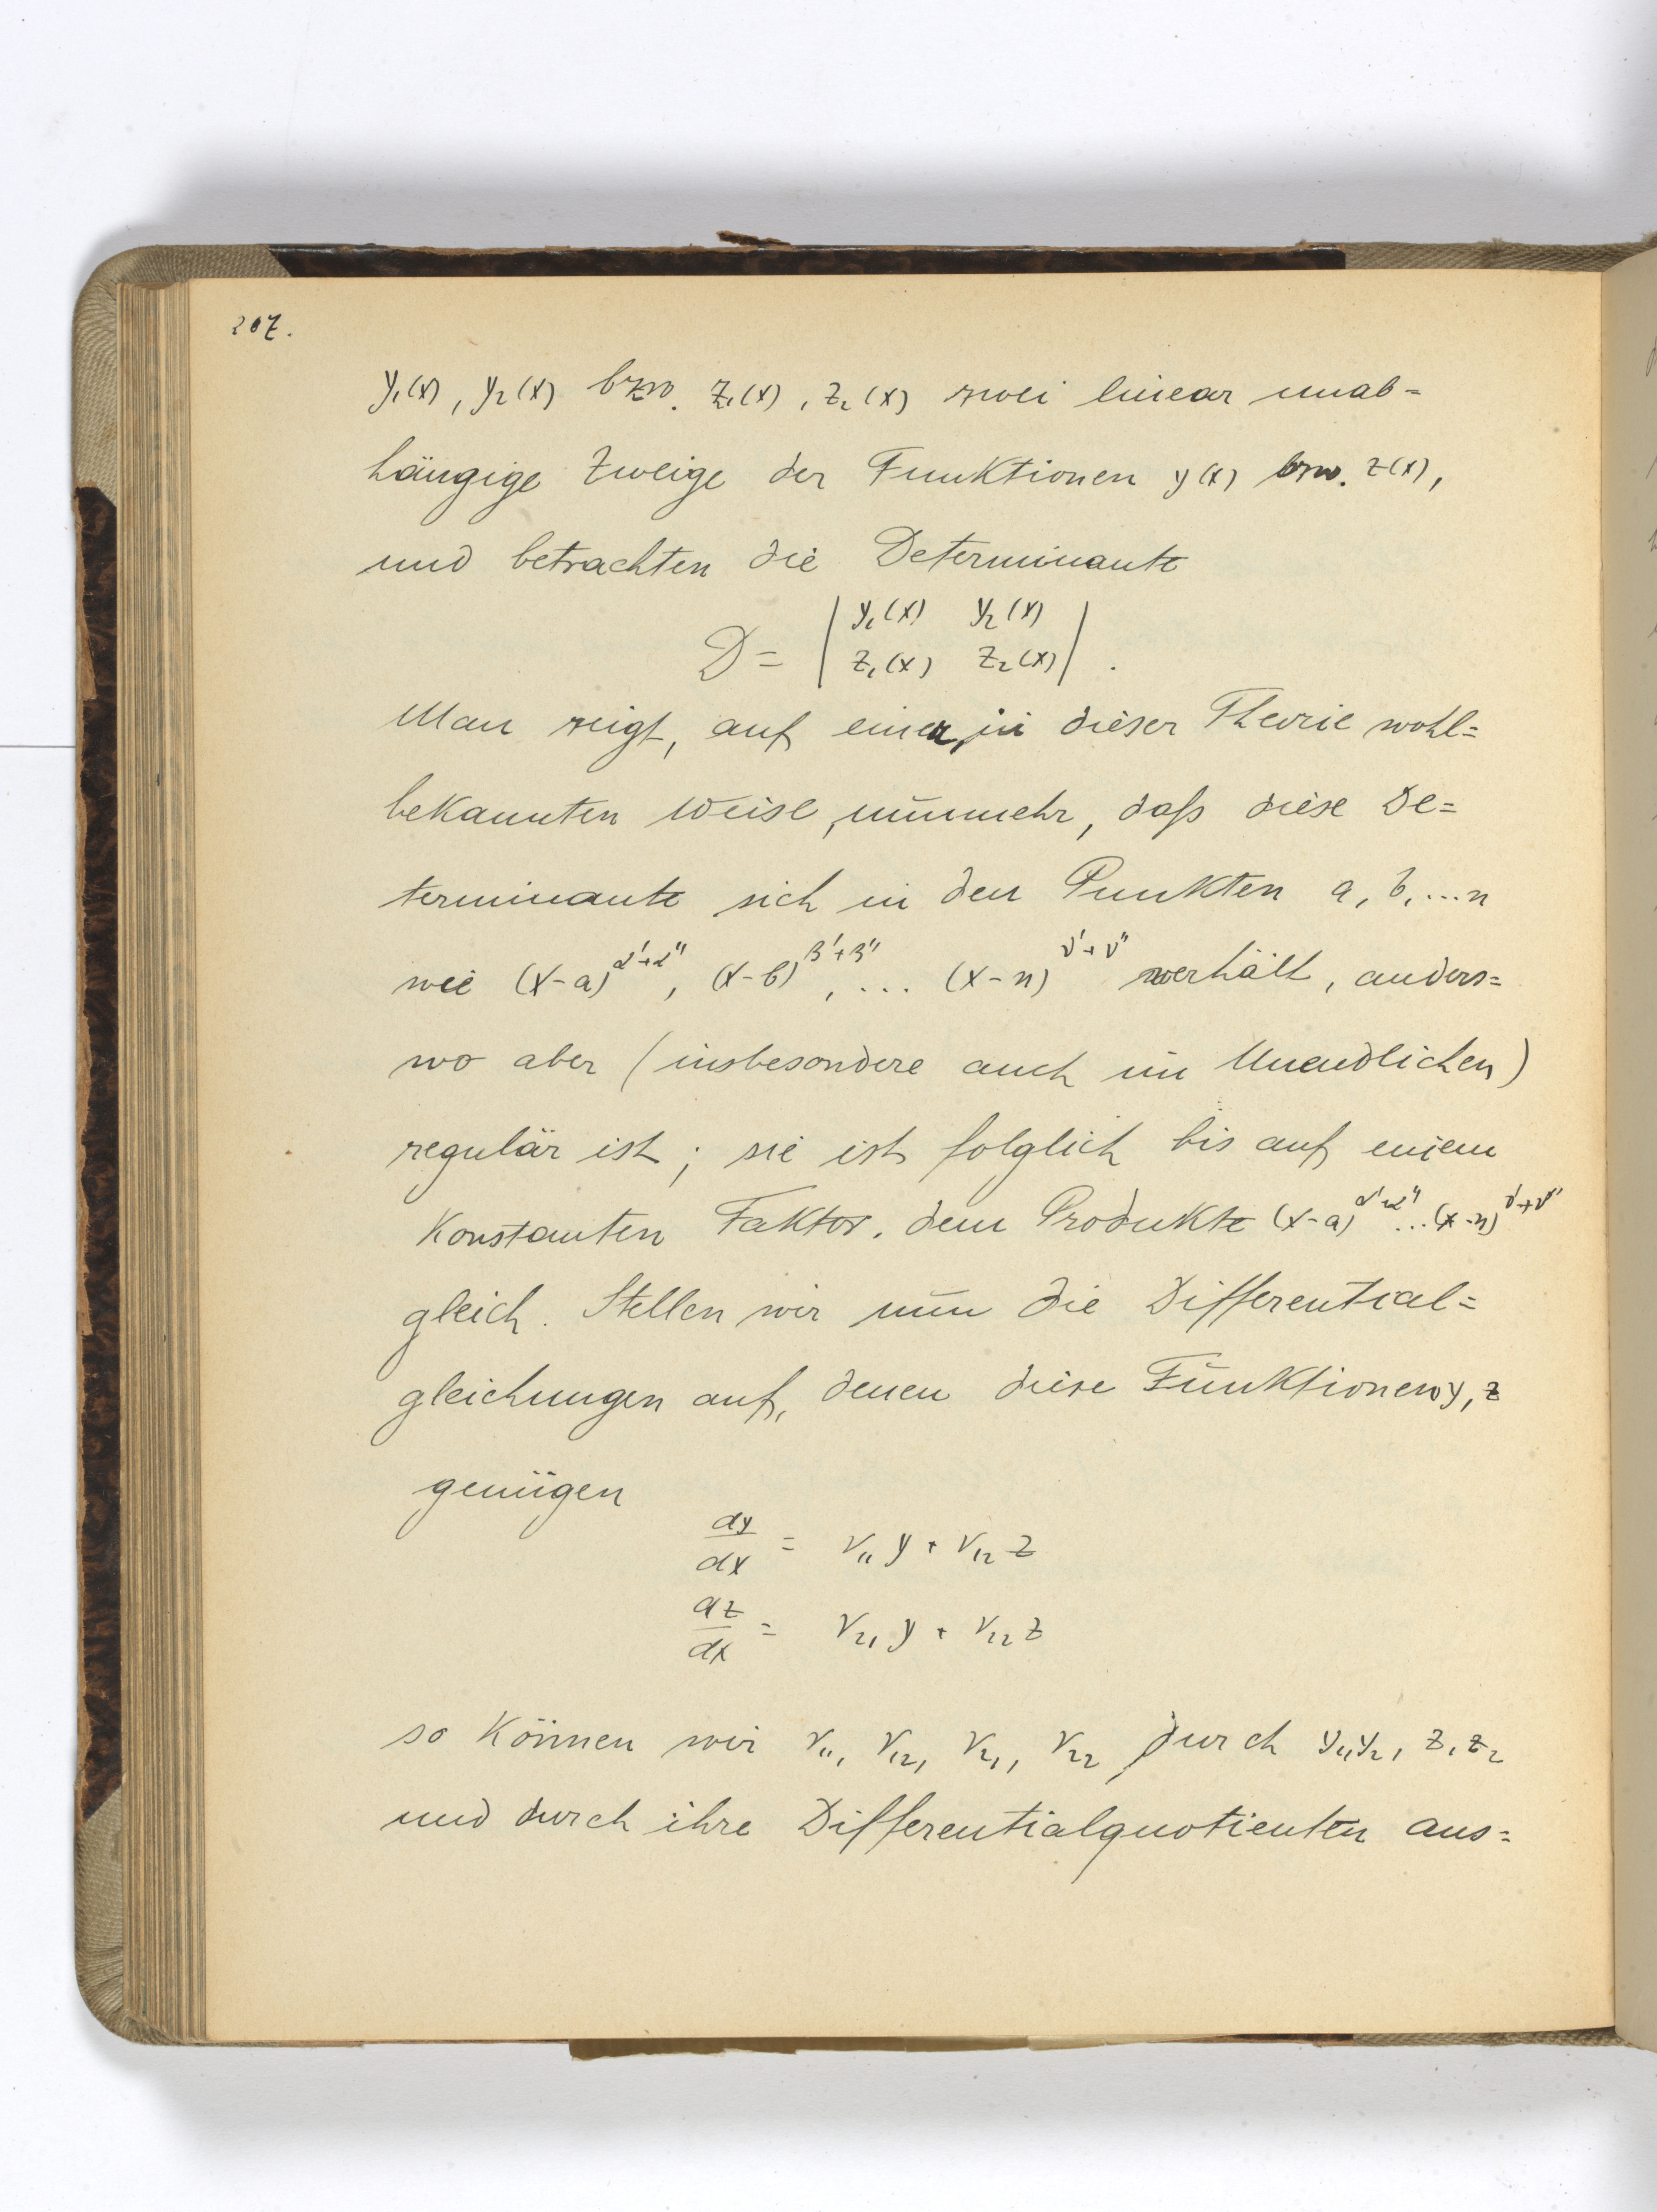 207.
y₁(x), y₂(x) bzw. z₁(x), z₂(x) zwei linear unab=
hängige Zweige der Funktionen y(x) bzw. z(x),
und betrachten die Determinante
D = | y₁(x) y₂(x) |
| z₁(x) z₂(x) | .
Man zeigt, auf einer in dieser Theorie wohl=
bekannten Weise, nunmehr, daß diese De=
terminante sich in den Punkten a, b, ... n
wie (x-a)^{α'+α''}, (x-b)^{β'+β''}, ... (x-n)^{ν'+ν''} verhält, anders=
wo aber (insbesondere auch im Unendlichen)
regulär ist; sie ist folglich bis auf einem
Konstanten Faktor, dem Produkte (x-a)^{α'+α''} ... (x-n)^{ν'+ν''}
gleich. Stellen wir nun die Differential=
gleichungen auf, denen diese Funktionen y, z
genügen
dy/dx = r₁₁ y + r₁₂ z
dz/dx = r₂₁ y + r₂₂ z
so Können wir r₁₁, r₁₂, r₂₁, r₂₂ durch y₁, y₂, z₁ z₂
und durch ihre Differentialquotienten aus=